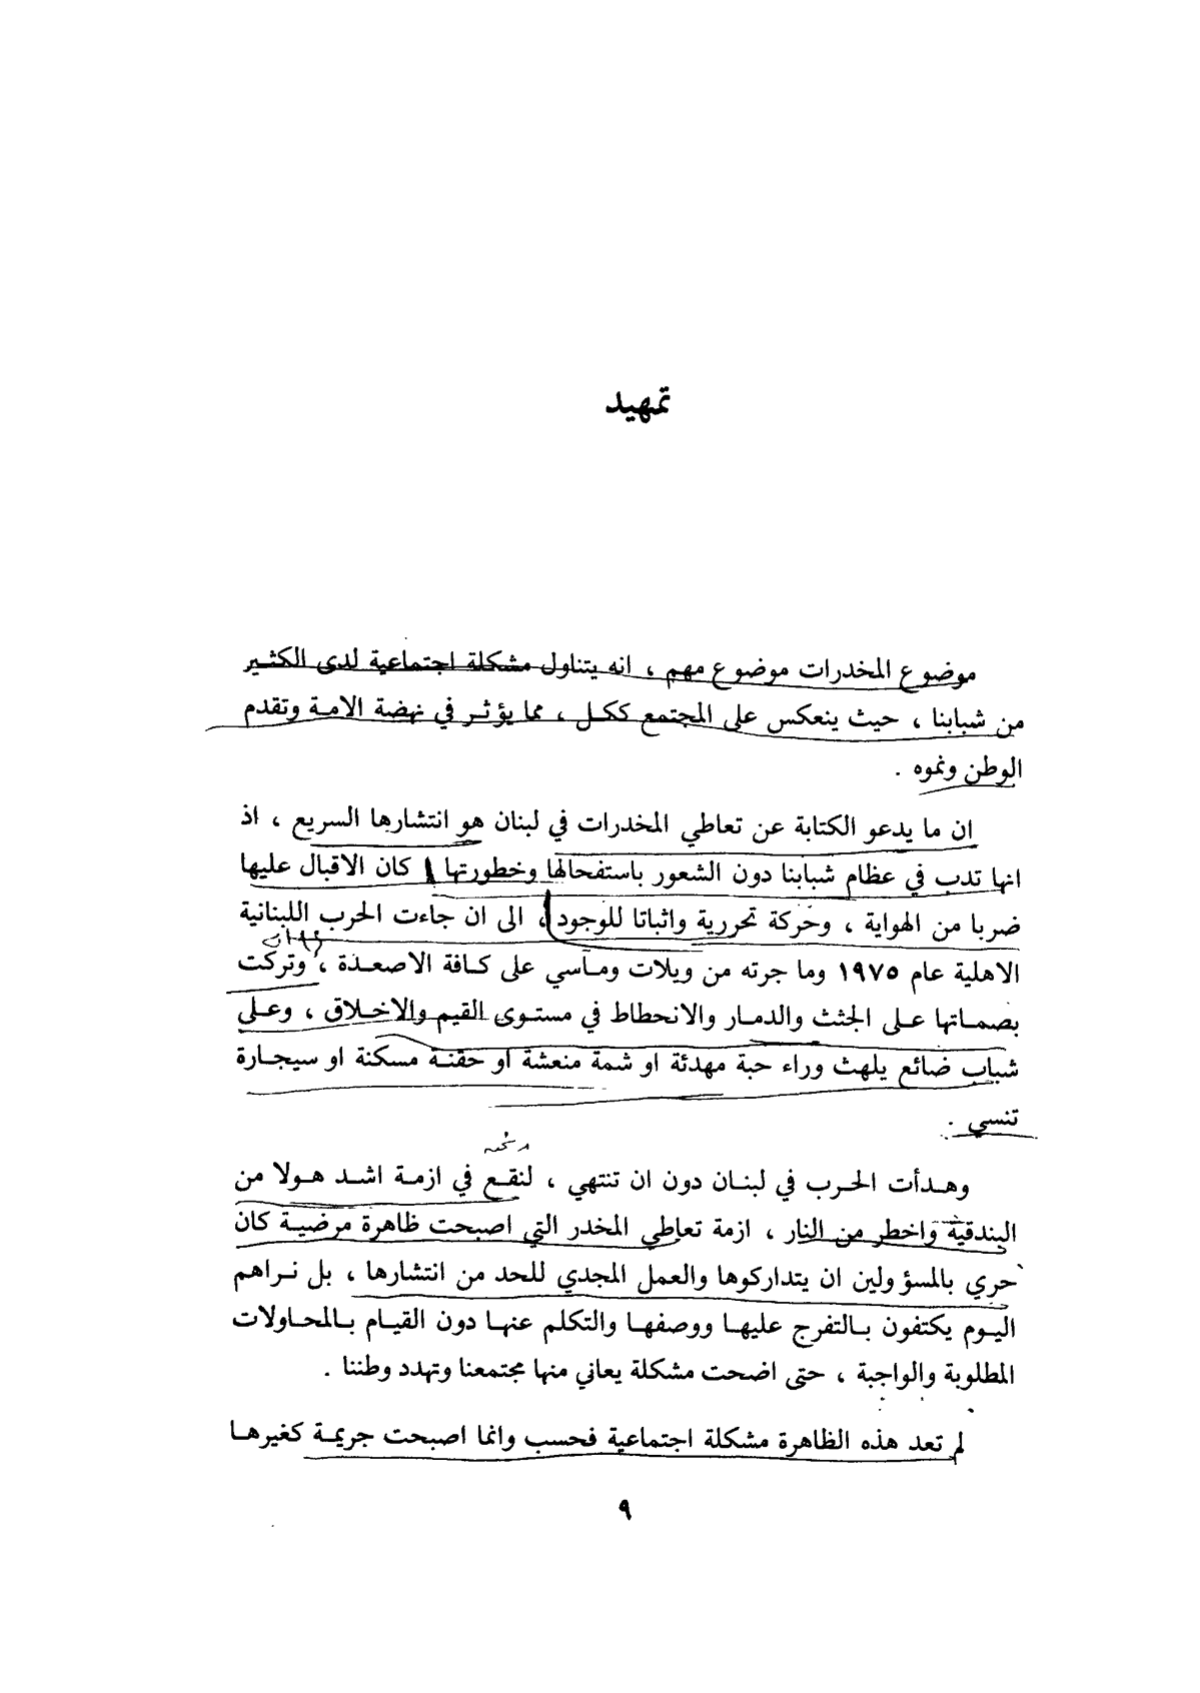 تمهيد
موضوع المخدرات موضوع مهم ، انه يتناول مشكلة اجتماعية لدى الكثير
من شبابنا ، حيث ينعكس على المجتمع ككل ، مما يؤثر في نهضة الامة وتقدم
الوطن ونموه .
ان ما يدعو الكتابة عن تعاطي المخدرات في لبنان هو انتشارها السريع ، اذ
انها تدب في عظام شبابنا دون الشعور باستفحالها وخطورتها كان الاقبال عليها
ضربا من الهواية ، وحركة تحررية واثباتا للوجود ، الى ان جاءت الحرب اللبنانية
الاهلية عام ١٩٧٥ وما جرته من ويلات ومآسي على كافة الاصعدة ، وتركت
بصماتها على الجثث والدمار والانحطاط في مستوى القيم والاخلاق ، وعلى
شباب ضائع يلهث وراء حبة مهدئة او شمة منعشة او حقنة مسكنة او سيجارة
تنسي .
وهدأت الحرب في لبنان دون ان تنتهي ، لنقع في ازمة اشد هولا من
البندقية واخطر من النار ، ازمة تعاطي المخدر التي اصبحت ظاهرة مرضية كان
حري بالمسؤولين ان يتداركوها والعمل المجدي للحد من انتشارها ، بل نراهم
اليوم يكتفون بالتفرج عليها ووصفها والتكلم عنها دون القيام بالمحاولات
المطلوبة والواجبة ، حتى اضحت مشكلة يعاني منها مجتمعنا وتهدد وطننا .
لم تعد هذه الظاهرة مشكلة اجتماعية فحسب وانما اصبحت جريمة كغيرها
٩